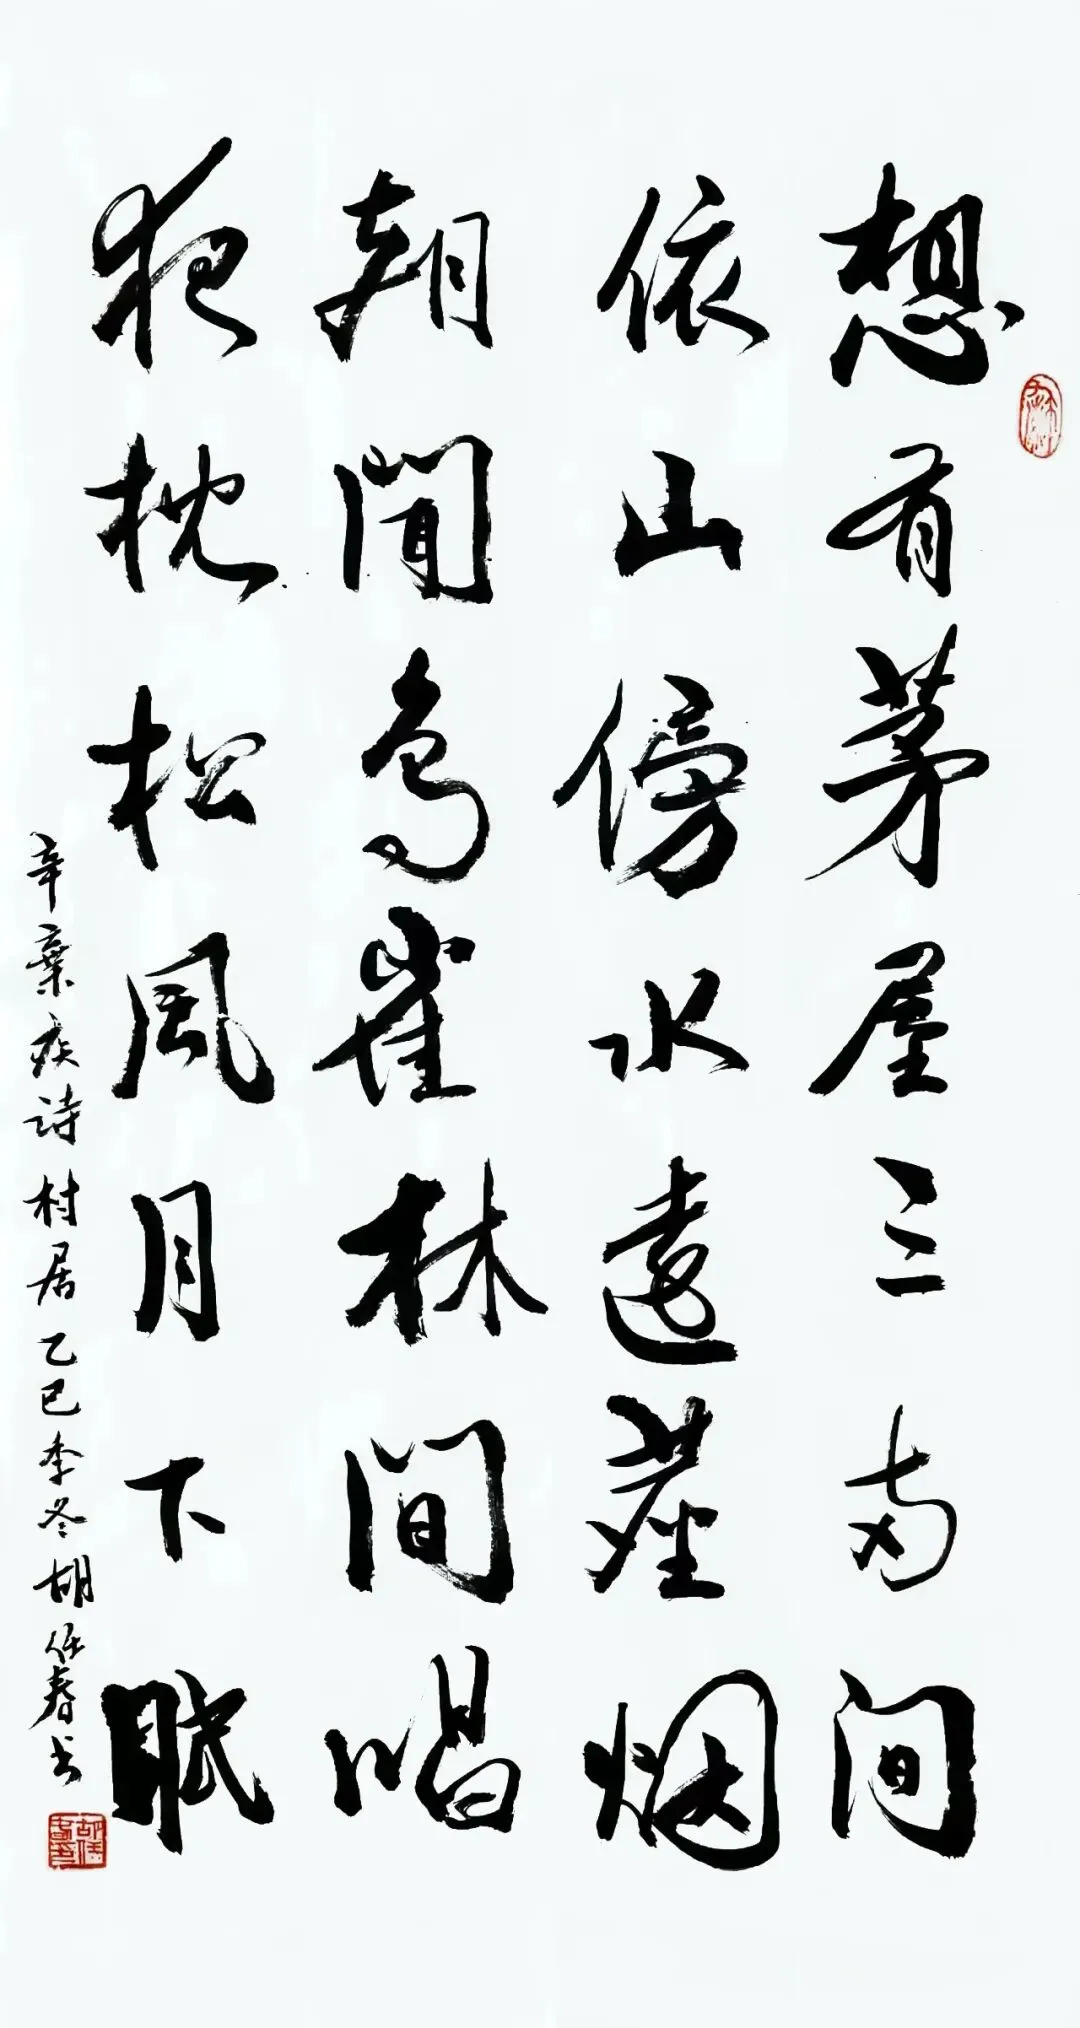 想有茅屋三两间
依山傍水远尘烟
朝闻鸟雀林间唱
夜枕松風月下眠
辛棄疾诗村居乙巳季冬胡任春书